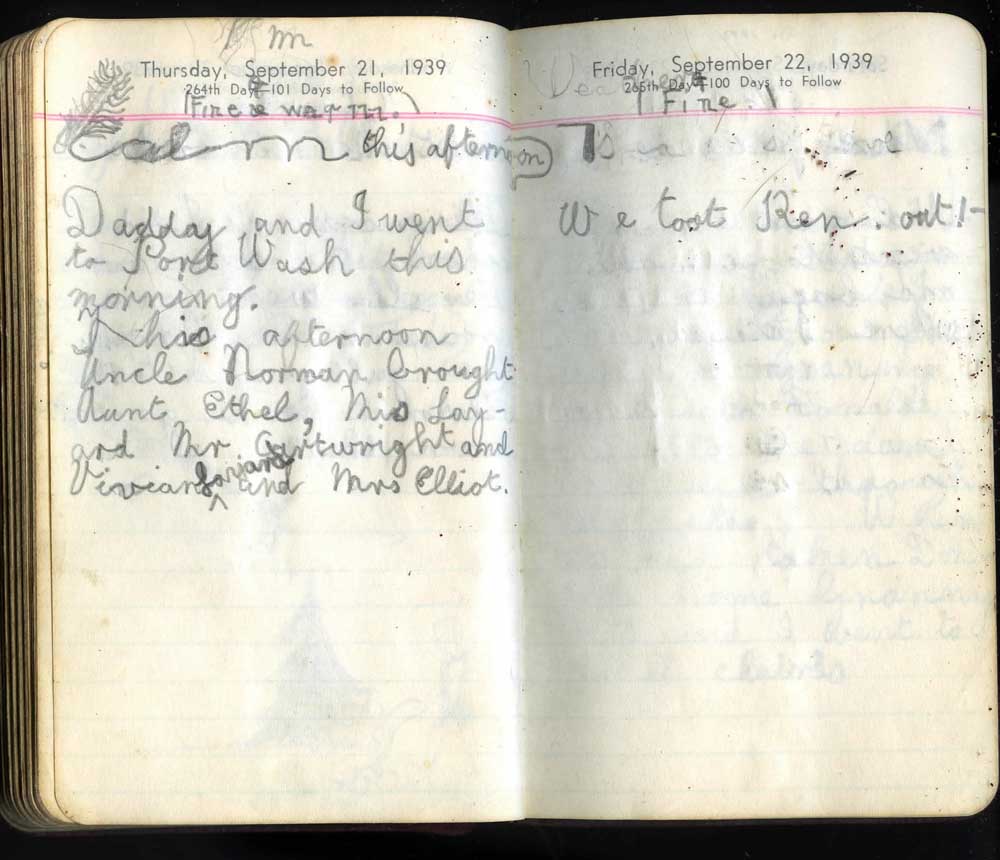 Thursday, September 21, 1939
264th Day—101 Days to Follow
Fine & warm.
Calm this afternoon
Daddy and I went
to Port Wash this
morning.
This afternoon
Uncle Norman brought
Aunt Ethel, Miss Lay-
ard Mr Cartwright and
Vivian and Mrs Elliot.
Friday, September 22, 1939
265th Day—100 Days to Follow
Fine
We toot Ren. out!-